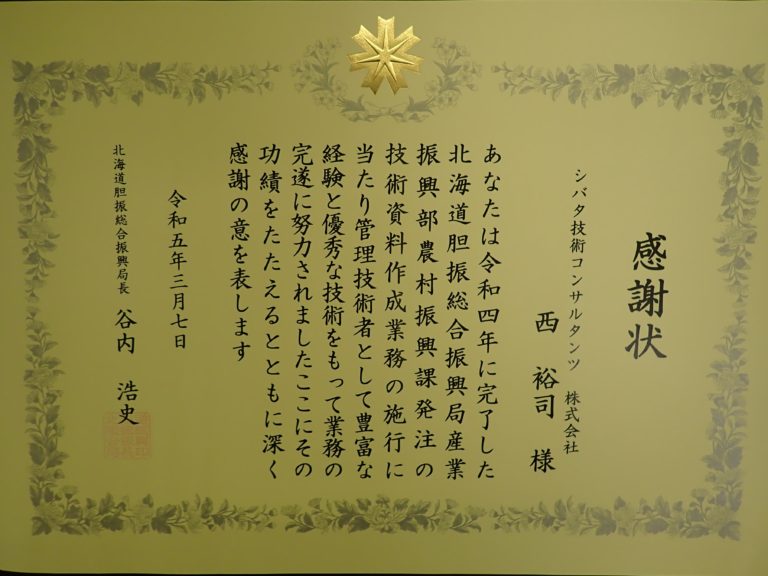 感謝状
シバタ技術コンサルタンツ 株式会社
西 裕司 様
あなたは令和四年に完了した
北海道胆振総合振興局産業
振興部農村振興課発注の
技術資料作成業務の施行に
当たり管理技術者として豊富な
経験と優秀な技術をもって業務の
完遂に努力されましたここにその
功績をたたえるとともに深く
感謝の意を表します
令和五年三月七日
北海道胆振総合振興局長 谷内 浩史